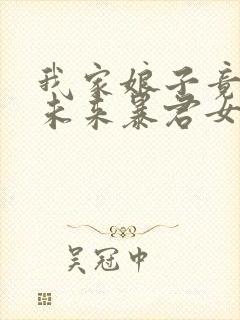 我家娘子竟
未来暴君女
吴冠中